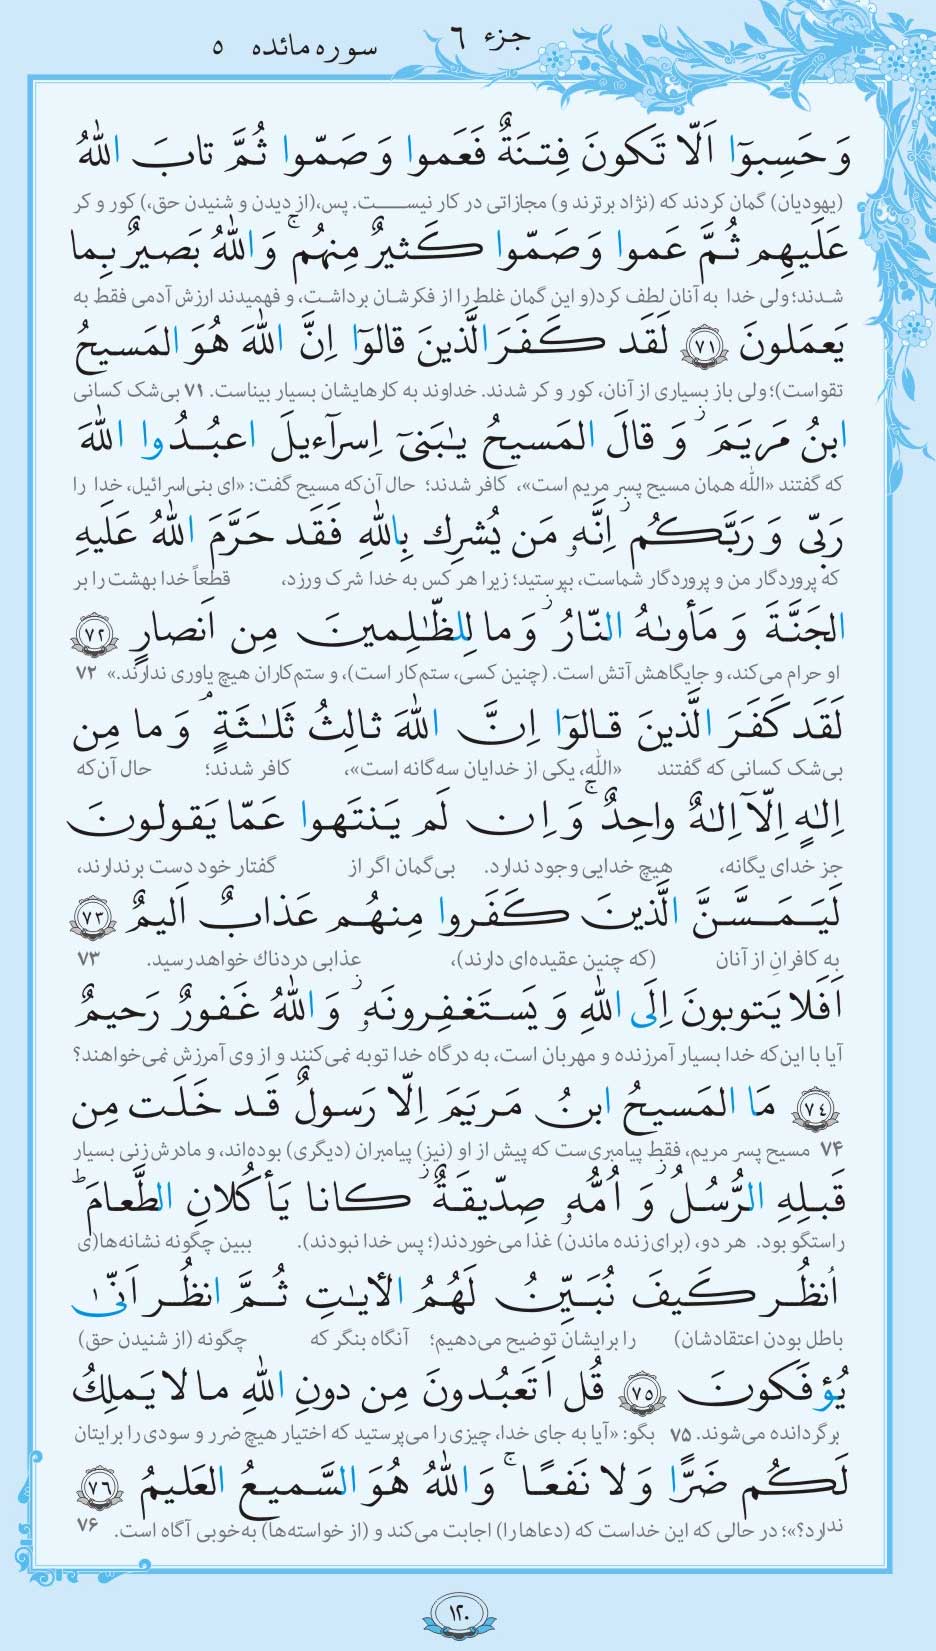 جزء ۶
سوره مائده ۵
وَ حَسِبوٓا اَلّا تَكونَ فِتنَةٌ فَعَموا وَ صَمّوا ثُمَّ تابَ اللهُ
(یهودیان) گمان کردند که (نژاد برترند و) مجازاتی در کار نیست. پس،(از دیدن و شنیدن حق،) کور و کر
عَلَيهِم ثُمَّ عَموا وَ صَمّوا كَثيرٌ مِنهُم ۚ وَ اللهُ بَصيرٌ بِما
شدند؛ ولی خدا به آنان لطف کرد(و این گمان غلط را از فکرشان برداشت، و فهمیدند ارزش آدمی فقط به
يَعمَلونَ ﴿٧١﴾ لَقَد كَفَرَ الَّذينَ قالوٓا اِنَّ اللهَ هُوَ المَسيحُ
تقواست)؛ ولی باز بسیاری از آنان، کور و کر شدند. خداوند به کارهایشان بسیار بیناست. ۷۱ بی‌شک کسانی
ابنُ مَريَمَ ۖ وَ قالَ المَسيحُ يٰبَنىٓ اِسرآءيلَ اعبُدُوا اللهَ
که گفتند «الله همان مسیح پسر مریم است»، کافر شدند؛ حال آن‌که مسیح گفت: «ای بنی‌اسرائیل، خدا را
رَبّى وَ رَبَّكُم ۖ اِنَّهٗ مَن يُشرِك بِاللهِ فَقَد حَرَّمَ اللهُ عَلَيهِ
که پروردگار من و پروردگار شماست، بپرستید؛ زیرا هر کس به خدا شرک ورزد، قطعاً خدا بهشت را بر
الجَنَّةَ وَ مَأوىٰهُ النّارُ ۖ وَ ما لِلظّٰلِمينَ مِن اَنصارٍ ﴿٧٢﴾
او حرام می‌کند، و جایگاهش آتش است. (چنین کسی، ستم‌کار است)، و ستم‌کاران هیچ یاوری ندارند.» ۷۲
لَقَد كَفَرَ الَّذينَ قالوٓا اِنَّ اللهَ ثالِثُ ثَلٰثَةٍ ۘ وَ ما مِن
بی‌شک کسانی که گفتند «الله، یکی از خدایان سه‌گانه است»، کافر شدند؛ حال آن‌که
اِلٰهٍ اِلّآ اِلٰهٌ واحِدٌ ۚ وَ اِن لَم يَنتَهوا عَمّا يَقولونَ
جز خدای یگانه، هیچ خدایی وجود ندارد. بی‌گمان اگر از گفتار خود دست برندارند،
لَيَمَسَّنَّ الَّذينَ كَفَروا مِنهُم عَذابٌ اَليمٌ ﴿٧٣﴾
به کافرانِ از آنان (که چنین عقیده‌ای دارند)، عذابی دردناك خواهد رسید. ۷۳
اَفَلا يَتوبونَ اِلَى اللهِ وَ يَستَغفِرونَهٗ ۖ وَ اللهُ غَفورٌ رَحيمٌ
آیا با این‌که خدا بسیار آمرزنده و مهربان است، به درگاه خدا توبه نمی‌کنند و از وی آمرزش نمی‌خواهند؟
﴿٧٤﴾ مَا المَسيحُ ابنُ مَريَمَ اِلّا رَسولٌ قَد خَلَت مِن
۷۴ مسیح پسر مریم، فقط پیامبری‌ست که پیش از او (نیز) پیامبران (دیگری) بوده‌اند، و مادرش زنی بسیار
قَبلِهِ الرُّسُلُ ۖ وَ اُمُّهٗ صِدّيقَةٌ ۖ كانا يَأكُلانِ الطَّعامَ ۗ
راستگو بود. هر دو، (برای زنده ماندن) غذا می‌خوردند(؛ پس خدا نبودند). ببین چگونه نشانه‌ها(ی
اُنظُر كَيفَ نُبَيِّنُ لَهُمُ الأياتِ ثُمَّ انظُر اَنّىٰ
باطل بودن اعتقادشان) را برایشان توضیح می‌دهیم؛ آنگاه بنگر که چگونه (از شنیدن حق)
يُؤفَكونَ ﴿٧٥﴾ قُل اَتَعبُدونَ مِن دونِ اللهِ ما لا يَملِكُ
برگردانده می‌شوند. ۷۵ بگو: «آیا به جای خدا، چیزی را می‌پرستید که اختیار هیچ ضرر و سودی را برایتان
لَكُم ضَرًّا وَ لا نَفعًا ۚ وَ اللهُ هُوَ السَّميعُ العَليمُ ﴿٧٦﴾
ندارد؟»؛ در حالی که این خداست که (دعاها را) اجابت می‌کند و (از خواسته‌ها) به‌خوبی آگاه است. ۷۶
۱۲۰